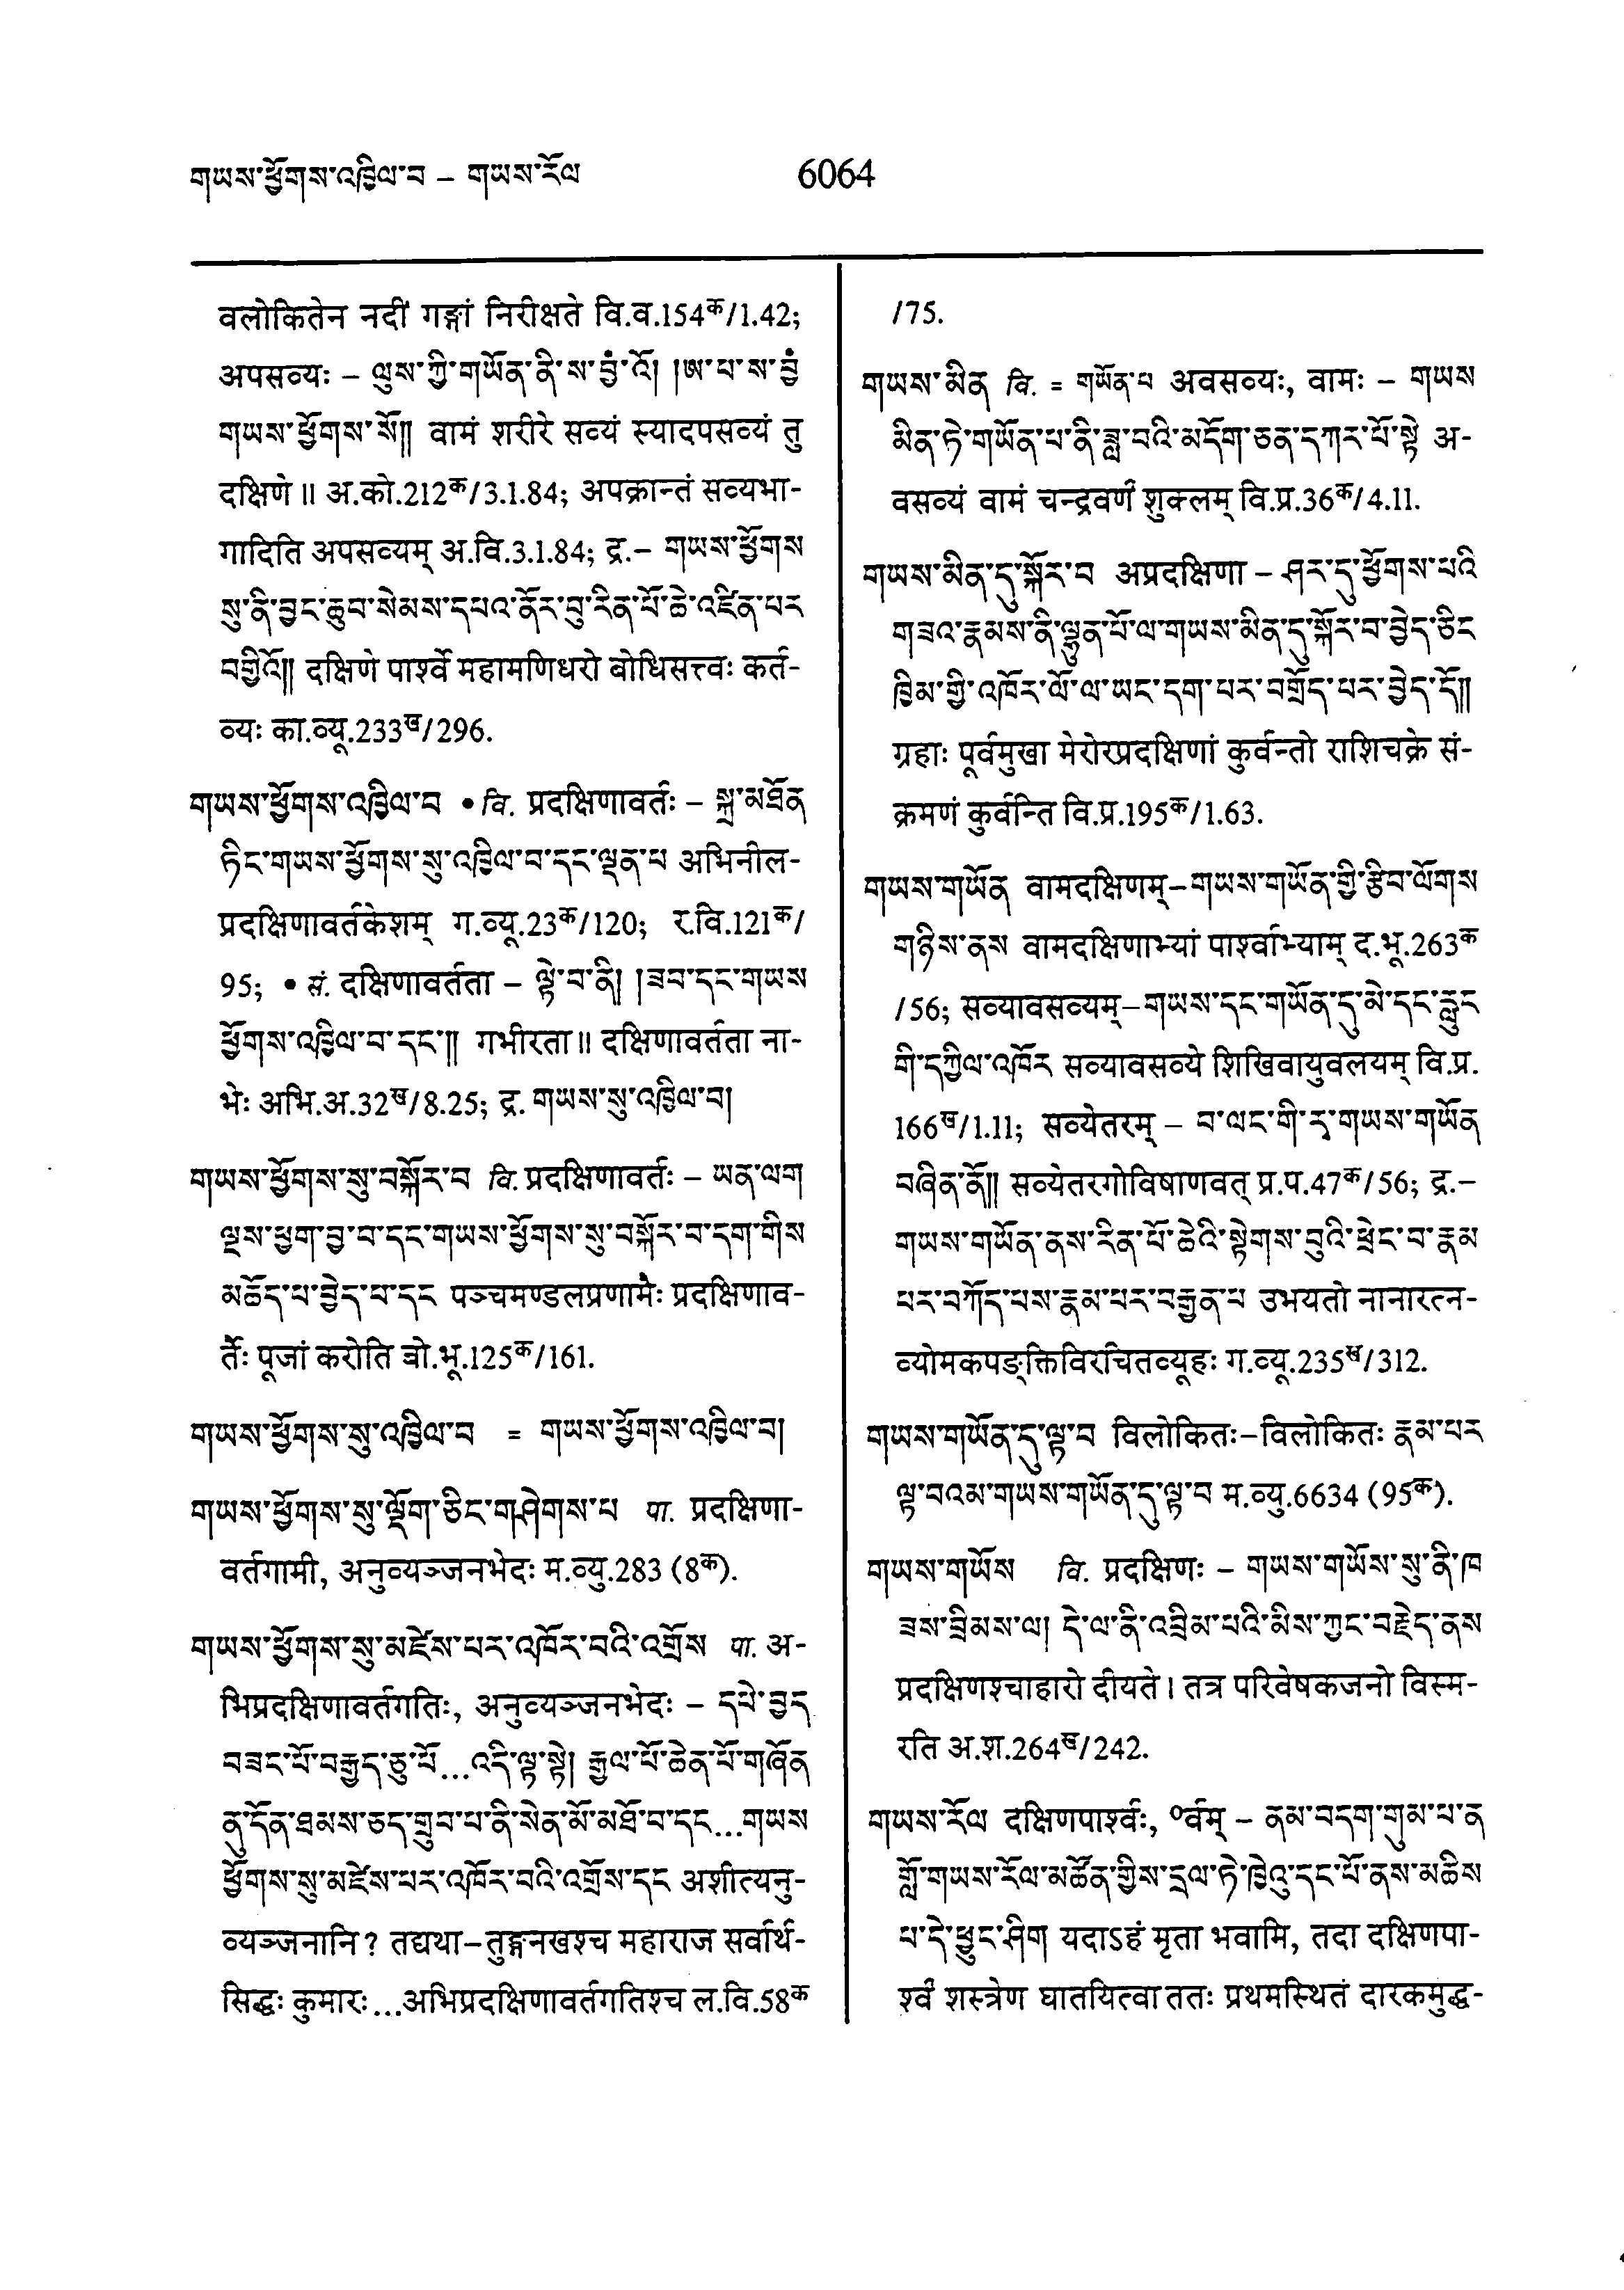 གཡས་ཕྱོགས་འཁྱིལ་བ – གཡས་རོལ
6064
वलोकितेन नदीं गङ्गां निरीक्षते वि.व.154क/1.42;
अपसव्यः – ལུས་ཀྱི་གཡོན་ནི་ས་བྱཾ་འོ། །ཨ་པ་ས་བྱཾ
གཡས་ཕྱོགས་སོ།། वामं शरीरे सव्यं स्यादपसव्यं तु
दक्षिणे ॥ अ.को.212क/3.1.84; अपक्रान्तं सव्यभा-
गादिति अपसव्यम् अ.वि.3.1.84; द्र.– གཡས་ཕྱོགས
སུ་ནི་བྱང་ཆུབ་སེམས་དཔའ་ནོར་བུ་རིན་པོ་ཆེ་འཛིན་པར
བགྱིའོ།། दक्षिणे पार्श्वे महामणिधरो बोधिसत्त्वः कर्त-
व्यः का.व्यू.233ख/296.
གཡས་ཕྱོགས་འཁྱིལ་བ • वि. प्रदक्षिणावर्तः – སྐྲ་མཐོན
ཏིང་གཡས་ཕྱོགས་སུ་འཁྱིལ་བ་དང་ལྡན་པ अभिनील-
प्रदक्षिणावर्तकेशम् ग.व्यू.23क/120; र.वि.121क/
95; • सं. दक्षिणावर्तता – ལྟེ་བ་ནི། །ཟབ་དང་གཡས
ཕྱོགས་འཁྱིལ་བ་དང་།། गभीरता ॥ दक्षिणावर्तता ना-
भेः अभि.अ.32ख/8.25; द्र. གཡས་སུ་འཁྱིལ་བ།
གཡས་ཕྱོགས་སུ་བསྐོར་བ वि. प्रदक्षिणावर्तः – ཡན་ལག
ལྔས་ཕྱག་བྱ་བ་དང་གཡས་ཕྱོགས་སུ་བསྐོར་བ་དག་གིས
མཆོད་པ་བྱེད་པ་དང पञ्चमण्डलप्रणामैः प्रदक्षिणाव-
र्तैः पूजां करोति बो.भू.125क/161.
གཡས་ཕྱོགས་སུ་འཁྱིལ་བ = གཡས་ཕྱོགས་འཁྱིལ་བ།
གཡས་ཕྱོགས་སུ་ལྡོག་ཅིང་གཤེགས་པ पा. प्रदक्षिणा-
वर्तगामी, अनुव्यञ्जनभेदः म.व्यु.283 (8क).
གཡས་ཕྱོགས་སུ་མཛེས་པར་འཁོར་བའི་འགྲོས पा. अ-
भिप्रदक्षिणावर्तगतिः, अनुव्यञ्जनभेदः – དཔེ་བྱད
བཟང་པོ་བརྒྱད་ཅུ་པོ...འདི་ལྟ་སྟེ། རྒྱལ་པོ་ཆེན་པོ་གཞོན
ནུ་དོན་ཐམས་ཅད་གྲུབ་པ་ནི་སེན་མོ་མཐོ་བ་དང...གཡས
ཕྱོགས་སུ་མཛེས་པར་འཁོར་བའི་འགྲོས་དང अशीत्यनु-
व्यञ्जनानि? तद्यथा–तुङ्गनखश्च महाराज सर्वार्थ-
सिद्धः कुमारः...अभिप्रदक्षिणावर्तगतिश्च ल.वि.58क
/75.
གཡས་མིན वि. = གཡོན་པ अवसव्यः, वामः – གཡས
མིན་ཏེ་གཡོན་པ་ནི་ཟླ་བའི་མདོག་ཅན་དཀར་པོ་སྟེ अ-
वसव्यं वामं चन्द्रवर्णं शुक्लम् वि.प्र.36क/4.11.
གཡས་མིན་དུ་སྐོར་བ अप्रदक्षिणा – ཤར་དུ་ཕྱོགས་པའི
གཟའ་རྣམས་ནི་ལྷུན་པོ་ལ་གཡས་མིན་དུ་སྐོར་བ་བྱེད་ཅིང
ཁྱིམ་གྱི་འཁོར་ལོ་ལ་ཡང་དག་པར་བགྲོད་པར་བྱེད་དོ།།
ग्रहाः पूर्वमुखा मेरोरप्रदक्षिणां कुर्वन्तो राशिचक्रे सं-
क्रमणं कुर्वन्ति वि.प्र.195क/1.63.
གཡས་གཡོན वामदक्षिणम्–གཡས་གཡོན་གྱི་རྩིབ་ལོགས
གཉིས་ནས वामदक्षिणाभ्यां पार्श्वाभ्याम् द.भू.263क
/56; सव्यावसव्यम्–གཡས་དང་གཡོན་དུ་མེ་དང་རླུང
གི་དཀྱིལ་འཁོར सव्यावसव्ये शिखिवायुवलयम् वि.प्र.
166ख/1.11; सव्येतरम् – བ་ལང་གི་རྭ་གཡས་གཡོན
བཞིན་ནོ།། सव्येतरगोविषाणवत् प्र.प.47क/56; द्र.–
གཡས་གཡོན་ནས་རིན་པོ་ཆེའི་སྟེགས་བུའི་ཕྲེང་བ་རྣམ
པར་བཀོད་པས་རྣམ་པར་བརྒྱན་པ उभयतो नानारत्न-
व्योमकपङ्क्तिविरचितव्यूहः ग.व्यू.235ख/312.
གཡས་གཡོན་དུ་ལྟ་བ विलोकितः–विलोकितः རྣམ་པར
ལྟ་བའམ་གཡས་གཡོན་དུ་ལྟ་བ म.व्यु.6634 (95क).
གཡས་གཡོས वि. प्रदक्षिणः – གཡས་གཡོས་སུ་ནི་ཁ
ཟས་བྲིམས་ལ། དེ་ལ་ནི་འབྲིམ་པའི་མིས་ཀྱང་བརྗེད་ནས
प्रदक्षिणश्चाहारो दीयते । तत्र परिवेषकजनो विस्म-
रति अ.श.264ख/242.
གཡས་རོལ दक्षिणपार्श्वः, ०र्वम् – ནམ་བདག་གུམ་པ་ན
གློ་གཡས་རོལ་མཚོན་གྱིས་དྲལ་ཏེ་ཁྱེའུ་དང་པོ་ནས་མཆིས
པ་དེ་ཕྱུང་ཤིག यदाऽहं मृता भवामि, तदा दक्षिणपा-
र्श्वं शस्त्रेण घातयित्वा ततः प्रथमस्थितं दारकमुद्ध-